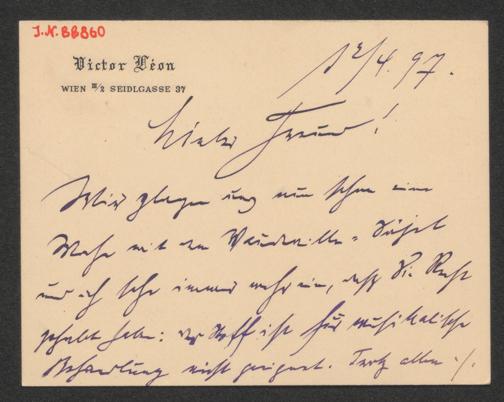 J.N. 88860
Victor Léon
WIEN III/2 SEIDLGASSE 37
12/4. 97.
Lieber Freund!
Wir plagen uns nun schon eine
Woche mit dem Vaudeville-Sujet
und ich sehe immer mehr ein, daß Sie Recht
gehabt haben: der Stoff ist für musikalische
Behandlung nicht geeignet. Trotz allem ./.